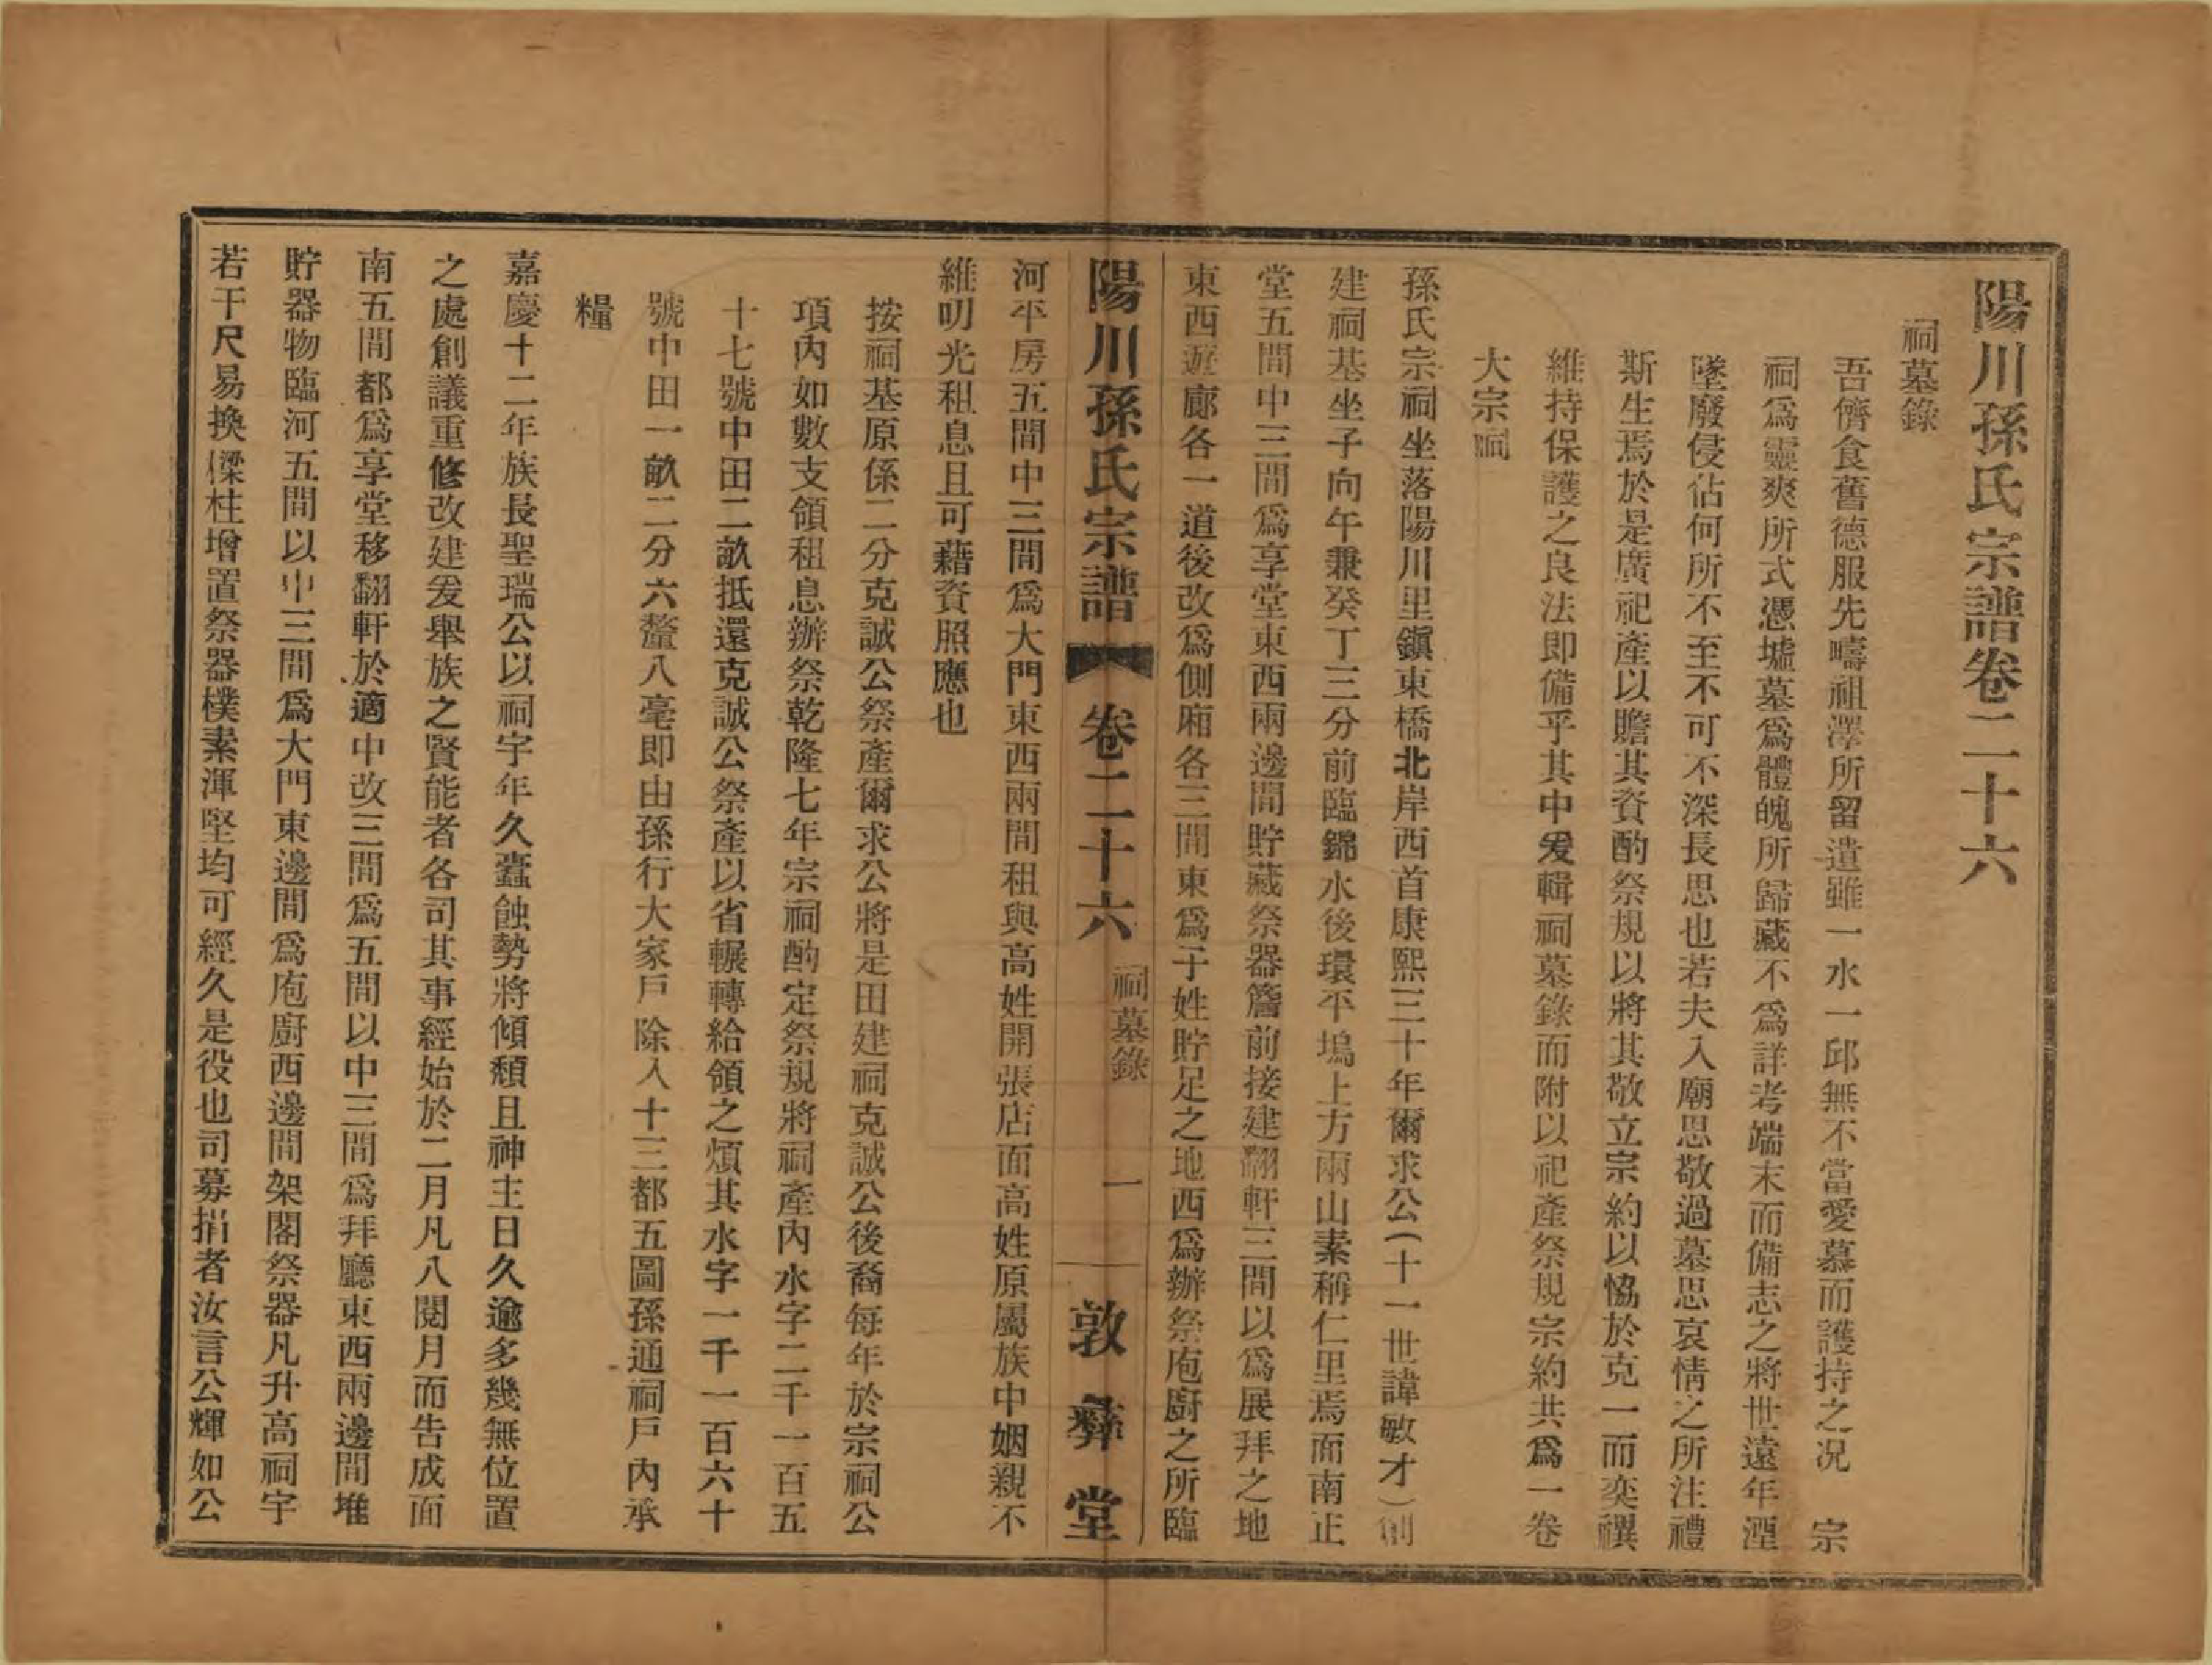 陽川孫氏宗譜卷二十六
祠墓錄
吾儕食舊德服先疇祖澤所留遺雖一水一邱無不當愛慕而護持之况　宗
祠爲靈爽所式憑墟墓爲體魄所歸藏不爲詳考端末而備志之將世遠年湮
墜廢侵佔何所不至不可不深長思也若夫入廟思敬過墓思哀情之所注禮
斯生焉於是廣祀產以贍其資酌祭規以將其敬立宗約以恊於克一而奕禩
維持保護之良法即備乎其中爰輯祠墓錄而附以祀產祭規宗約共爲一卷
大宗祠
孫氏宗祠坐落陽川里鎭東橋北岸西首康熙三十年爾求公（十一世諱敏才）創
建祠基坐子向午兼癸丁三分前臨錦水後環平塢上方兩山素稱仁里焉面南正
堂五間中三間爲享堂東西兩邊間貯藏祭器簷前接建翻軒三間以爲展拜之地
東西遊廊各一道後改爲側廂各三間東爲子姓貯足之地西爲辦祭庖廚之所臨
陽川孫氏宗譜　卷二十六　祠墓錄　一　敦彝堂
河平房五間中三間爲大門東西兩間租與高姓開張店面高姓原屬族中姻親不
維叨光租息且可藉資照應也
按祠基原係二分克誠公祭產爾求公將是田建祠克誠公後裔每年於宗祠公
項內如數支領租息辦祭乾隆七年宗祠酌定祭規將祠產內水字二千一百五
十七號中田二畝抵還克誠公祭產以省輾轉給領之煩其水字一千一百六十
號中田一畝二分六釐八毫即由孫行大家戶除入十三都五圖孫通祠戶內承
糧
嘉慶十二年族長聖瑞公以祠宇年久蠹蝕勢將傾頹且神主日久逾多幾無位置
之處創議重修改建爰舉族之賢能者各司其事經始於二月凡八閱月而告成面
南五間都爲享堂移翻軒於適中改三間爲五間以中三間爲拜廳東西兩邊間堆
貯器物臨河五間以中三間爲大門東邊間爲庖廚西邊間架閣祭器凡升高祠宇
若干尺易換樑柱增置祭器樸素渾堅均可經久是役也司募捐者汝言公輝如公